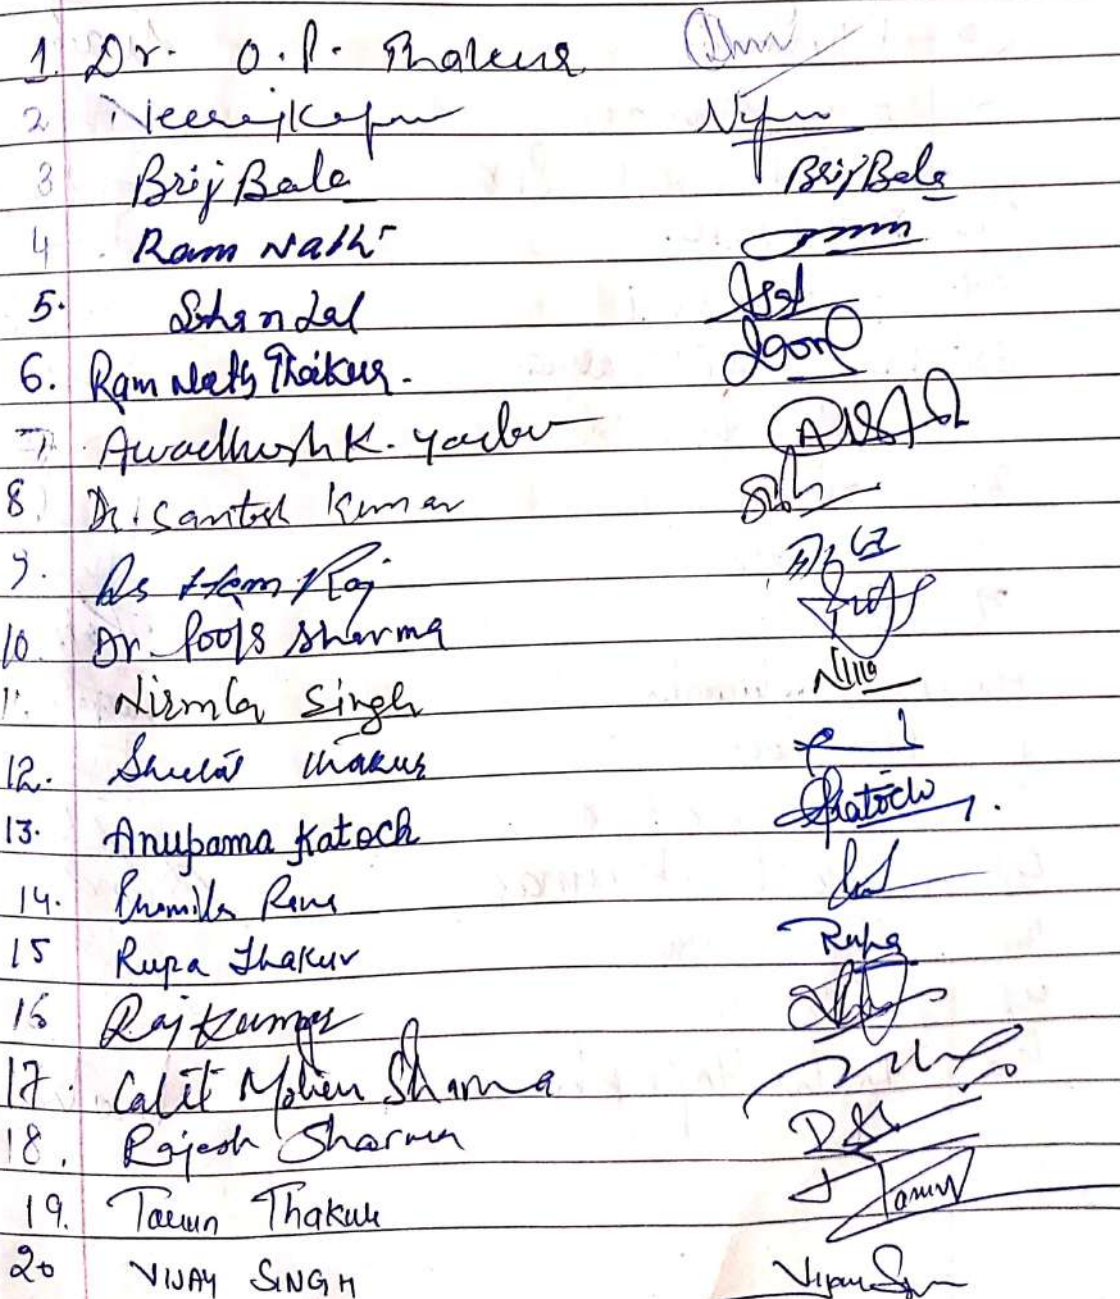 1. Dr. O.P. Thakur
2 Neeraj Kapur
3 Brij Bala Brij Bala
4 Ram Nath
5. Sher Lal
6. Ram Nath Thakur.
7. Awadhesh K. Yadav
8. Dr. Santosh Kumar
9. Dr Hem Raj
10. Dr. Pooja Sharma
11. Nirmla Singh
12. Thakur
13. Anupama Katoch Katoch
14. Promila Rana
15 Rupa Thakur Rupa
16 Raj Kumar
17. Lalit Mohan Sharma
18. Rajesh Sharma
19. Tarun Thakur Tarun
20 VIJAY SINGH Vijay